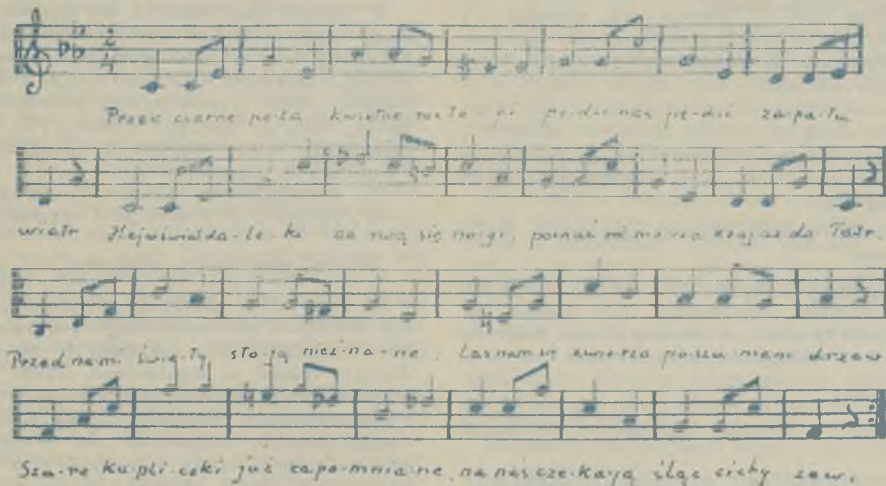 2 4
Przez czarne pola kwietne roz-to-pi pę-dzi nas pę-dzi za-pa-łu
wiatr Hej w świat da-le-ki za rwą się no-gi, poznać od morza kraj aż do Tatr.
Przed nami świą-ty sto-ją niez-na-ne, Las nam się zwierza poszu-mem drzew
Sza-re ka-pli-czki już zapo-mnia-ne na nas cze-ka-ją śląc cichy zew.